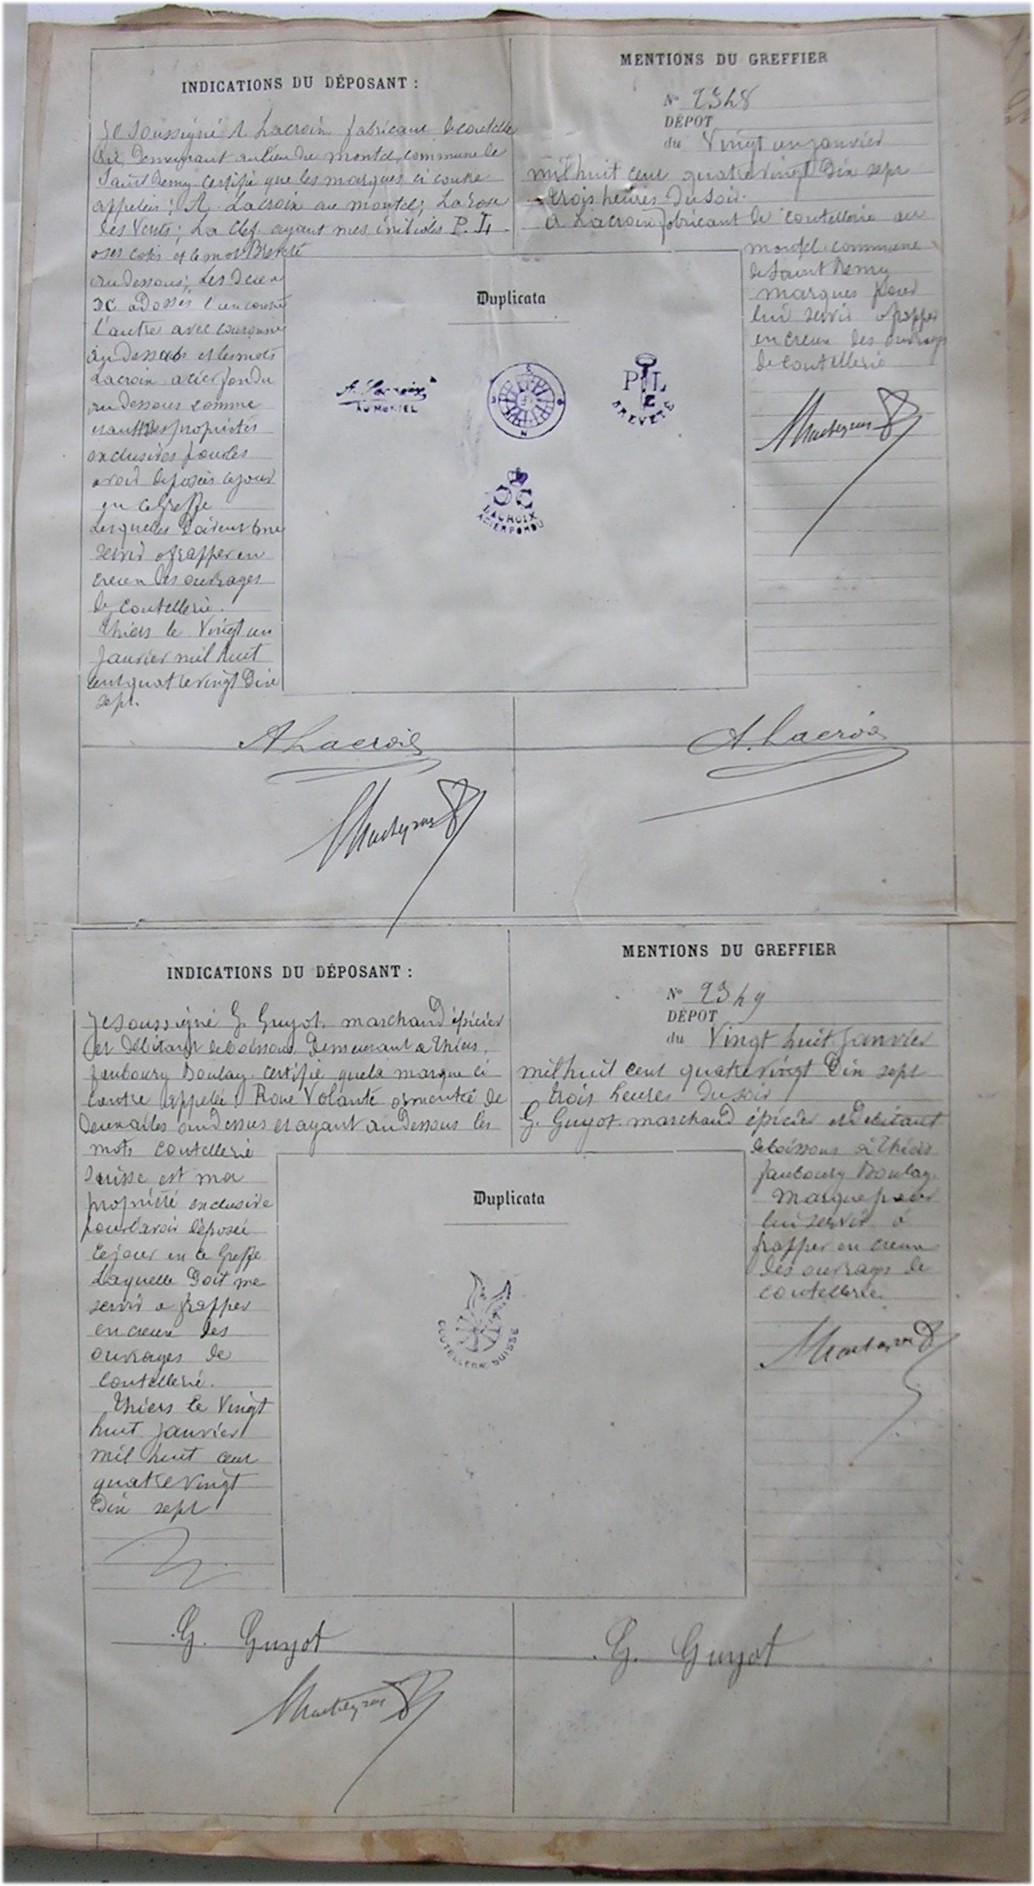 INDICATIONS DU DÉPOSANT :
Je soussigné A Lacroix fabricant de coutelle
rie, Demeurant au lieu du montel, commune de
Saint Remy certifie que les marques ci contre
appelées : A. Lacroix au montel; La rose
des Vents; La Clef ayant mes initiales P. L.
a ses cotés et le mot Breveté
au dessous; Les deux
ɔc adossés l'un contre
l'autre avec couronne
au dessus et les mots
Lacroix acier fondu
au dessous comme
étant mes propriétés
exclusives pour les
avoir déposées ce jour
en ce Greffe
Lesquelles doivent me
servir a frapper en
creux les ouvrages
de coutellerie.
Thiers le Vingt un
Janvier mil huit
cent quatre vingt Dix
sept.
MENTIONS DU GREFFIER
N° 2348
DÉPOT
du Vingt un janvier
mil huit cent quatre vingt Dix sept
trois heures Du soir.
A Lacroix fabricant de coutellerie au
montel commune
de Saint Remy
marques pour
lui servir a frapper
en creux des ouvrages
de coutellerie
Duplicata
A. Lacroix
AU MONTEL
P L
BREVETÉ
LACROIX
ACIER FONDU
A Lacroix
A. Lacroix
INDICATIONS DU DÉPOSANT :
Je soussigné G. Guyot, marchand épicier
et débitant de boissons Demeurant a Thiers,
faubourg Boulay certifie que la marque ci
contre appelée : Roue Volante surmontée de
deux ailes au dessus et ayant au Dessous les
mots coutellerie
Suisse est ma
propriété exclusive
pour l'avoir déposée
ce jour en ce Greffe
Laquelle Doit me
servir a frapper
en creux des
ouvrages de
coutellerie.
Thiers le Vingt
huit Janvier
mil huit cent
quatre vingt
Dix sept
MENTIONS DU GREFFIER
N° 2349
DÉPOT
du Vingt huit Janvier
mil huit cent quatre vingt Dix sept
trois heures du soir
G. Guyot marchand épicier et Débitant
de boissons à Thiers
faubourg Boulay
Marque pour
lui servir à
frapper en creux
des ouvrages de
coutellerie.
Duplicata
COUTELLERIE SUISSE
G. Guyot
G. Guyot